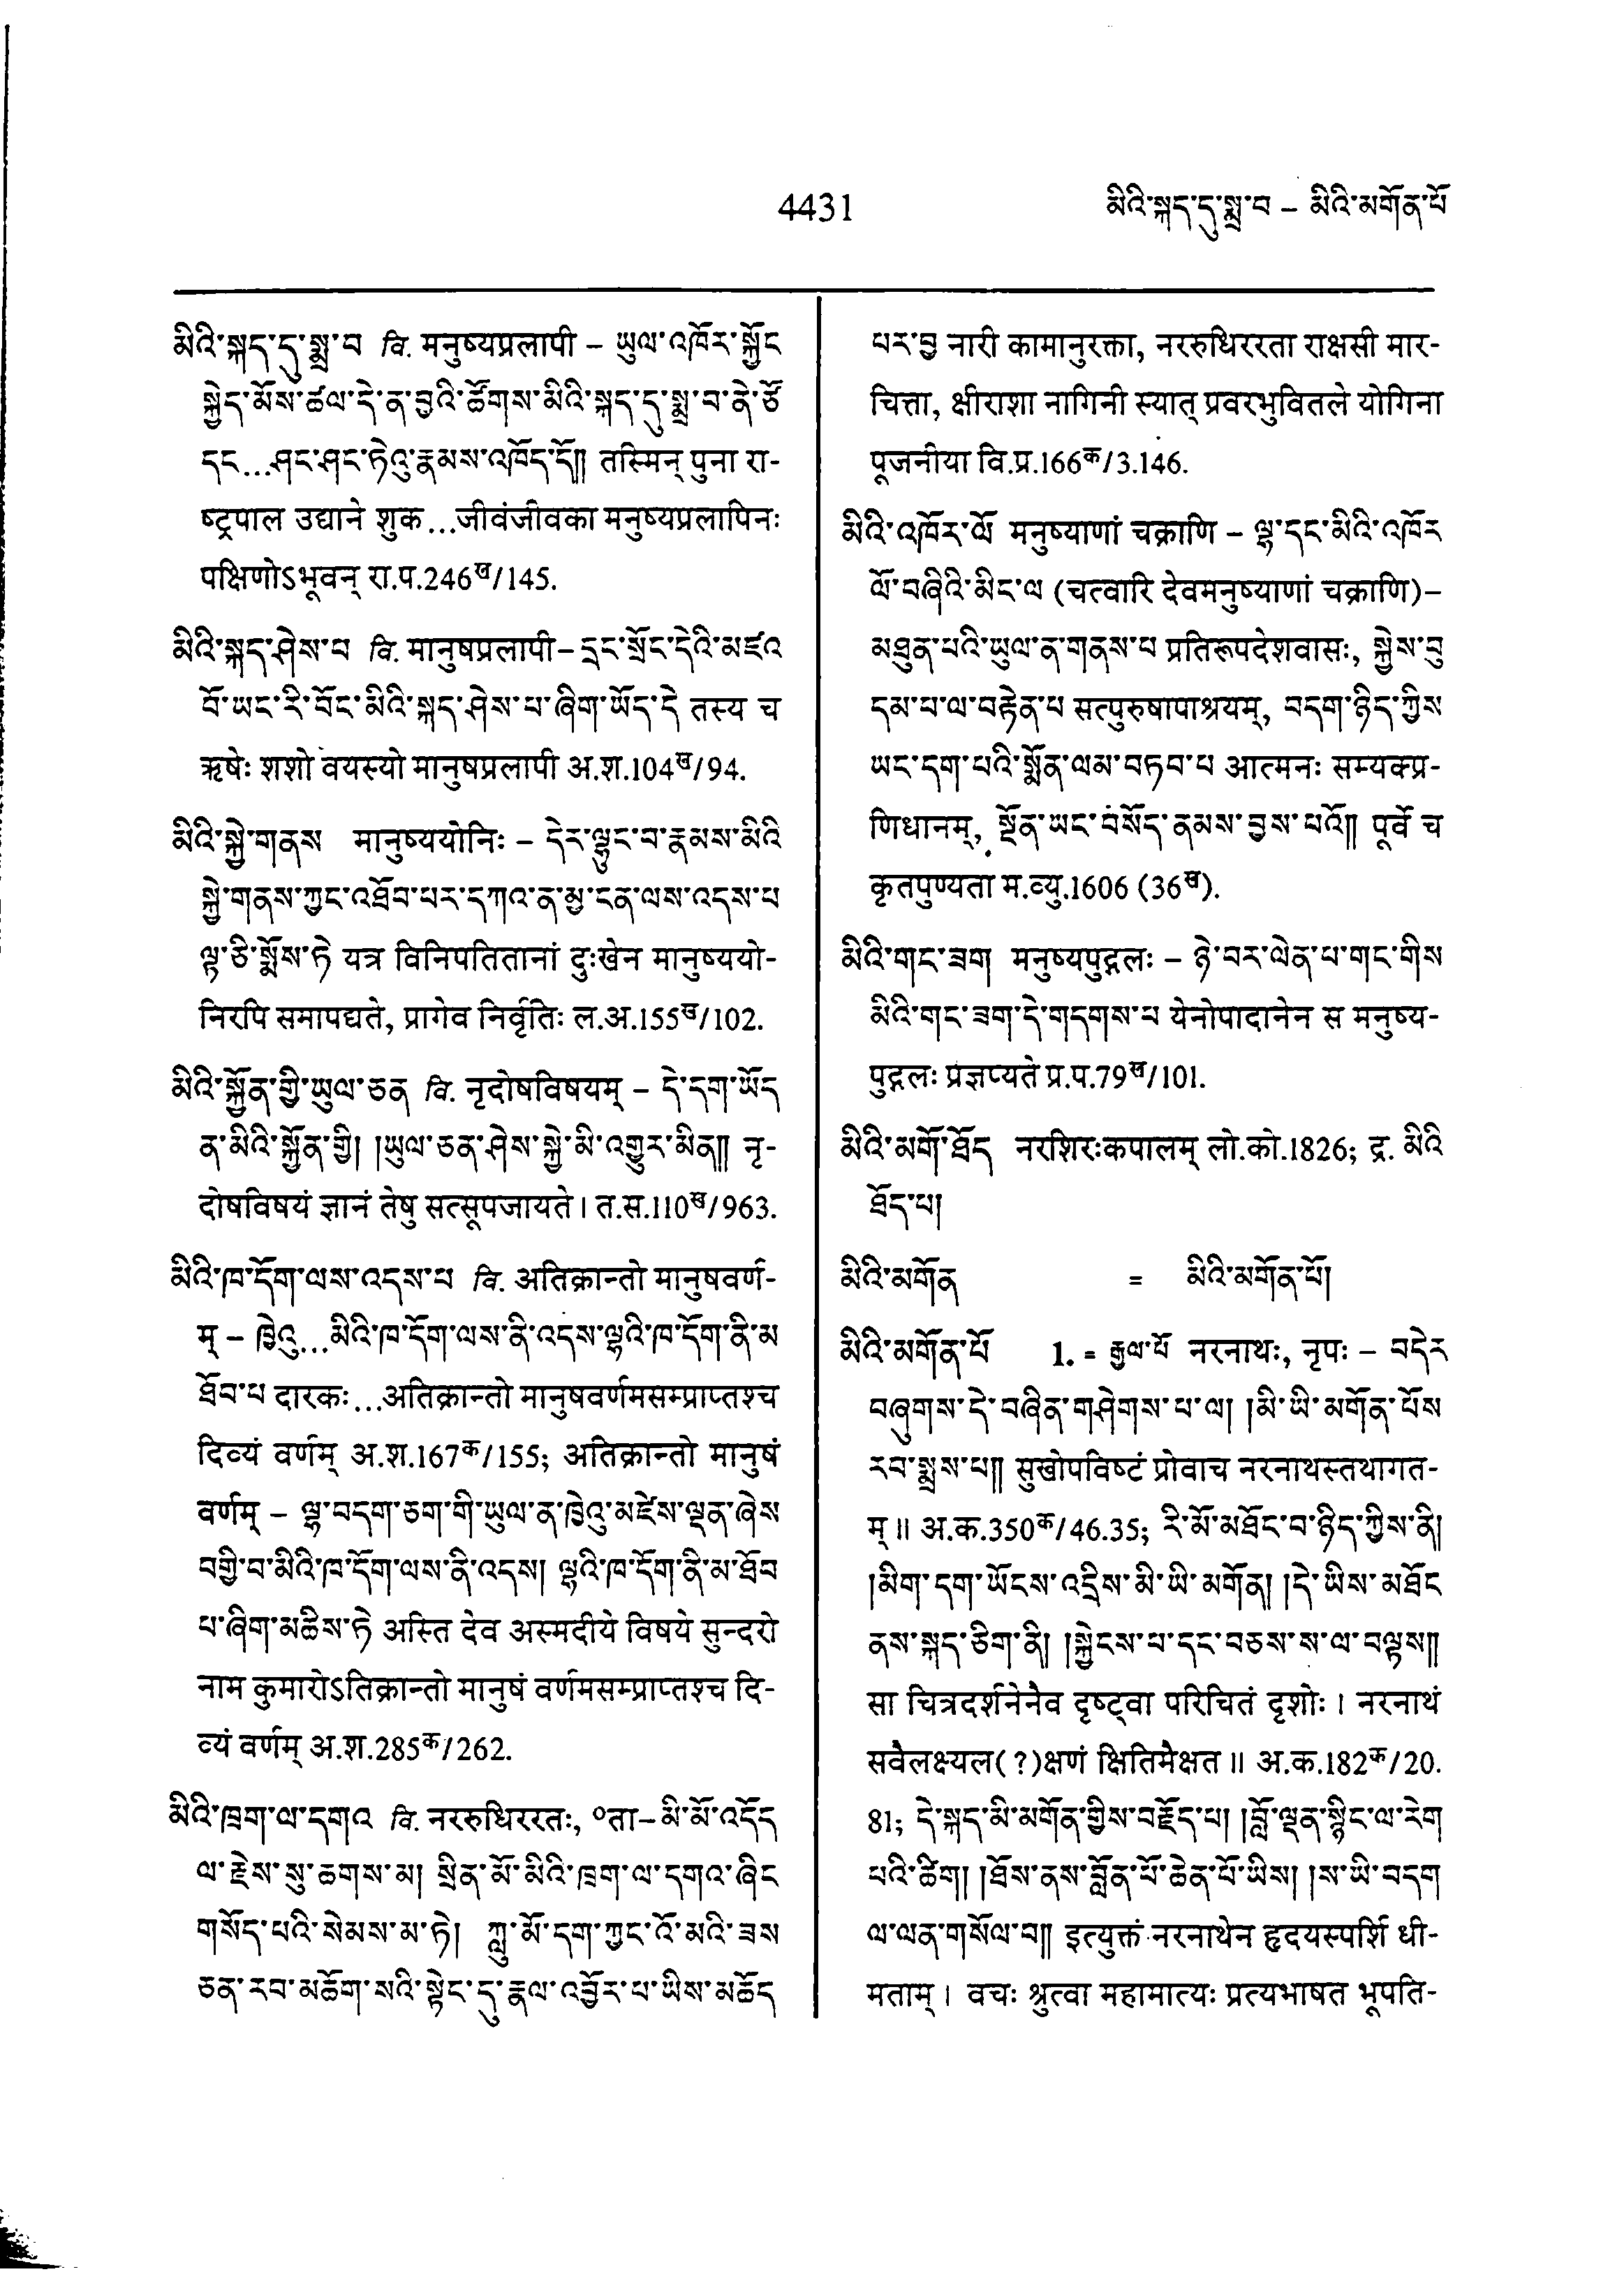 4431
མིའི་སྐད་དུ་སྨྲ་བ – མིའི་མགོན་པོ
མིའི་སྐད་དུ་སྨྲ་བ वि. मनुष्यप्रलापी – ཡུལ་འཁོར་སྐྱོང
སྐྱེད་མོས་ཚལ་དེ་ན་བྱའི་ཚོགས་མིའི་སྐད་དུ་སྨྲ་བ་ནེ་ཙོ
དང...ཤང་ཤང་ཏེའུ་རྣམས་འཁོད་དོ།། तस्मिन् पुना रा-
ष्ट्रपाल उद्याने शुक...जीवंजीवका मनुष्यप्रलापिनः
पक्षिणोऽभूवन् रा.प.246ख/145.
མིའི་སྐད་ཤེས་པ वि. मानुषप्रलापी– དྲང་སྲོང་དེའི་མཛའ
བོ་ཡང་རི་བོང་མིའི་སྐད་ཤེས་པ་ཞིག་ཡོད་དེ तस्य च
ऋषेः शशो वयस्यो मानुषप्रलापी अ.श.104ख/94.
མིའི་སྐྱེ་གནས मानुष्ययोनिः – དེར་ལྟུང་བ་རྣམས་མིའི
སྐྱེ་གནས་ཀྱང་འཐོབ་པར་དཀའ་ན་མྱ་ངན་ལས་འདས་པ
ལྟ་ཅི་སྨོས་ཏེ यत्र विनिपतितानां दुःखेन मानुष्ययो-
निरपि समापद्यते, प्रागेव निर्वृतिः ल.अ.155ख/102.
མིའི་སྐྱོན་གྱི་ཡུལ་ཅན वि. नृदोषविषयम् – དེ་དག་ཡོད
ན་མིའི་སྐྱོན་གྱི། །ཡུལ་ཅན་ཤེས་སྐྱེ་མི་འགྱུར་མིན།། नृ-
दोषविषयं ज्ञानं तेषु सत्सूपजायते। त.स.110ख/963.
མིའི་ཁ་དོག་ལས་འདས་པ वि. अतिक्रान्तो मानुषवर्ण-
म् – ཁྱེའུ...མིའི་ཁ་དོག་ལས་ནི་འདས་ལྷའི་ཁ་དོག་ནི་མ
ཐོབ་པ दारकः...अतिक्रान्तो मानुषवर्णमसम्प्राप्तश्च
दिव्यं वर्णम् अ.श.167क/155; अतिक्रान्तो मानुषं
वर्णम् – ལྷ་བདག་ཅག་གི་ཡུལ་ན་ཁྱེའུ་མཛེས་ལྡན་ཞེས
བགྱི་བ་མིའི་ཁ་དོག་ལས་ནི་འདས། ལྷའི་ཁ་དོག་ནི་མ་ཐོབ
པ་ཞིག་མཆིས་ཏེ अस्ति देव अस्मदीये विषये सुन्दरो
नाम कुमारोऽतिक्रान्तो मानुषं वर्णमसम्प्राप्तश्च दि-
व्यं वर्णम् अ.श.285क/262.
མིའི་ཁྲག་ལ་དགའ वि. नररुधिररतः, °ता– མི་མོ་འདོད
ལ་རྗེས་སུ་ཆགས་མ། སྲིན་མོ་མིའི་ཁྲག་ལ་དགའ་ཞིང
གསོད་པའི་སེམས་མ་ཏེ། ཀླུ་མོ་དག་ཀྱང་འོ་མའི་ཟས
ཅན་རབ་མཆོག་སའི་སྟེང་དུ་རྣལ་འབྱོར་པ་ཡིས་མཆོད
པར་བྱ नारी कामानुरक्ता, नररुधिररता राक्षसी मार-
चित्ता, क्षीराशा नागिनी स्यात् प्रवरभुवितले योगिना
पूजनीया वि.प्र.166क/3.146.
མིའི་འཁོར་ལོ मनुष्याणां चक्राणि – ལྷ་དང་མིའི་འཁོར
ལོ་བཞིའི་མིང་ལ (चत्वारि देवमनुष्याणां चक्राणि)–
མཐུན་པའི་ཡུལ་ན་གནས་པ प्रतिरूपदेशवासः, སྐྱེས་བུ
དམ་པ་ལ་བརྟེན་པ सत्पुरुषापाश्रयम्, བདག་ཉིད་ཀྱིས
ཡང་དག་པའི་སྨོན་ལམ་བཏབ་པ आत्मनः सम्यक्प्र-
णिधानम्, སྔོན་ཡང་བསོད་ནམས་བྱས་པའོ།། पूर्वे च
कृतपुण्यता म.व्यु.1606 (36ख).
མིའི་གང་ཟག मनुष्यपुद्गलः – ཉེ་བར་ལེན་པ་གང་གིས
མིའི་གང་ཟག་དེ་གདགས་པ येनोपादानेन स मनुष्य-
पुद्गलः प्रज्ञप्यते प्र.प.79ख/101.
མིའི་མགོ་ཐོད नरशिरःकपालम् लो.को.1826; द्र. མིའི
ཐོད་པ།
མིའི་མགོན = མིའི་མགོན་པོ།
མིའི་མགོན་པོ 1. = རྒྱལ་པོ नरनाथः, नृपः – བདེར
བཞུགས་དེ་བཞིན་གཤེགས་པ་ལ། །མི་ཡི་མགོན་པོས
རབ་སྨྲས་པ།། सुखोपविष्टं प्रोवाच नरनाथस्तथागत-
म्॥ अ.क.350क/46.35; རི་མོ་མཐོང་བ་ཉིད་ཀྱིས་ནི།
།མིག་དག་ཡོངས་འདྲིས་མི་ཡི་མགོན། །དེ་ཡིས་མཐོང
ནས་སྐད་ཅིག་ནི། །སྐྱེངས་པ་དང་བཅས་ས་ལ་བལྟས།།
सा चित्रदर्शनेनैव दृष्ट्वा परिचितं दृशोः। नरनाथं
सवैलक्ष्यल(?)क्षणं क्षितिमैक्षत॥ अ.क.182क/20.
81; དེ་སྐད་མི་མགོན་གྱིས་བརྗོད་པ། །བློ་ལྡན་སྙིང་ལ་རེག
པའི་ཚིག། །ཐོས་ནས་བློན་པོ་ཆེན་པོ་ཡིས། །ས་ཡི་བདག
ལ་ལན་གསོལ་བ།། इत्युक्तं नरनाथेन हृदयस्पर्शि धी-
मताम्। वचः श्रुत्वा महामात्यः प्रत्यभाषत भूपति-